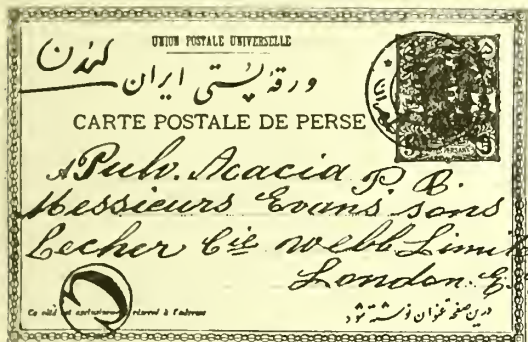 UNION POSTALE UNIVERSELLE
لندن
ورقهٔ پستی ایران
CARTE POSTALE DE PERSE
Pulv. Acacia P. B.
Messieurs Evans sons
Lecher Cie webb Limit
London. E.
Ce côté est exclusivement réservé à l'adresse
درین صفحه عنوان نوشته شود
5